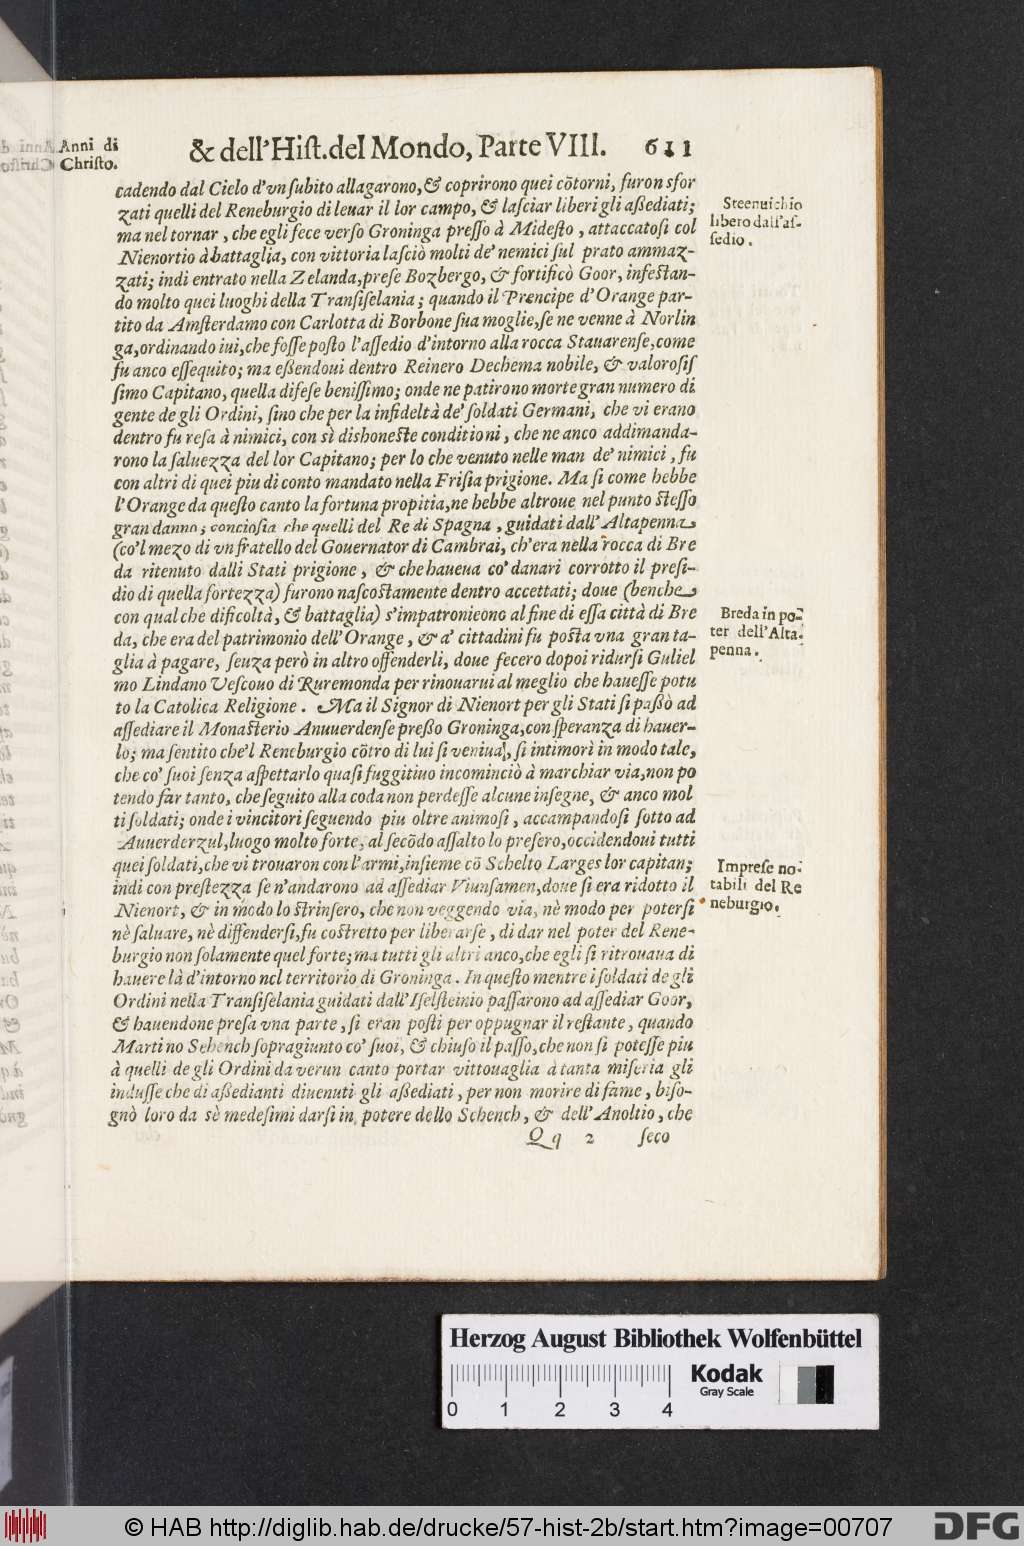 Anni di
Christo.
& dell'Hist. del Mondo, Parte VIII. 611
cadendo dal Cielo d'vn subito allagarono, & coprirono quei cõtorni, furon sfor
zati quelli del Reneburgio di leuar il lor campo, & lasciar liberi gli aßediati;
ma nel tornar, che egli fece verso Groninga presso à Midesto, attaccatosi col
Nienortio à battaglia, con vittoria lasciò molti de' nemici sul prato ammaz-
zati; indi entrato nella Zelanda, prese Bozbergo, & fortificò Goor, infestan-
do molto quei luoghi della Transiselania; quando il Prencipe d'Orange par-
tito da Amsterdamo con Carlotta di Borbone sua moglie, se ne venne à Norlin
ga, ordinando iui, che fosse posto l'assedio d'intorno alla rocca Stauarense, come
fu anco essequito; ma eßendoui dentro Reinero Dechema nobile, & valorosis
simo Capitano, quella difese benissimo; onde ne patirono morte gran numero di
gente de gli Ordini, sino che per la infideltà de' soldati Germani, che vi erano
dentro fu resa à nimici, con sì dishoneste conditioni, che ne anco addimanda-
rono la saluezza del lor Capitano; per lo che venuto nelle man de' nimici, fu
con altri di quei piu di conto mandato nella Frisia prigione. Ma si come hebbe
l'Orange da questo canto la fortuna propitia, ne hebbe altroue nel punto stesso
gran danno; conciosia che quelli del Re di Spagna, guidati dall'Altapenna
(co'l mezo di vn fratello del Gouernator di Cambrai, ch'era nella rocca di Bre
da ritenuto dalli Stati prigione, & che haueua co' danari corrotto il presi-
dio di quella fortezza) furono nascostamente dentro accettati; doue (benche
con qual che dificoltà, & battaglia) s'impatronirono al fine di essa città di Bre
da, che era del patrimonio dell'Orange, & a' cittadini fu posta vna gran ta-
glia à pagare, senza però in altro offenderli, doue fecero dopoi ridursi Guliel
mo Lindano Vescouo di Ruremonda per rinouarui al meglio che hauesse potu
to la Catolica Religione. Ma il Signor di Nienort per gli Stati si passò ad
assediare il Monasterio Auuuerdense preßo Groninga, con speranza di hauer-
lo; ma sentito che'l Reneburgio cõtro di lui si veniua, si intimorì in modo tale,
che co' suoi senza aspettarlo quasi fuggitiuo incominciò à marchiar via, non po
tendo far tanto, che seguito alla coda non perdesse alcune insegne, & anco mol
ti soldati; onde i vincitori seguendo piu oltre animosi, accampandosi sotto ad
Auuerderzul, luogo molto forte, al secõdo assalto lo presero, occidendoui tutti
quei soldati, che vi trouaron con l'armi, insieme cõ Schelto Larges lor capitan;
indi con prestezza se n'andarono ad assediar Viunsamen, doue si era ridotto il
Nienort, & in modo lo strinsero, che non veggendo via, nè modo per potersi
nè saluare, nè diffendersi, fu costretto per liberarse, di dar nel poter del Rene-
burgio non solamente quel forte; ma tutti gli altri anco, che egli si ritrouaua di
hauere là d'intorno nel territorio di Groninga. In questo mentre i soldati de gli
Ordini nella Transiselania guidati dall'Iselsteinio passarono ad assediar Goor,
& hauendone presa vna parte, si eran posti per oppugnar il restante, quando
Martino Schench sopragiunto co' suoi, & chiuso il passo, che non si potesse piu
à quelli de gli Ordini da verun canto portar vittouaglia à tanta miseria gli
indusse che di aßedianti diuenuti gli aßediati, per non morire di fame, biso-
gnò loro da sè medesimi darsi in potere dello Schench, & dell'Anoltio, che
Qq 2 seco
Steenuichio
libero dall'as-
sedio.
Breda in po-
ter dell'Alta-
penna.
Imprese no-
tabili del Re
neburgio.
Herzog August Bibliothek Wolfenbüttel
0 1 2 3 4
Kodak
Gray Scale
© HAB http://diglib.hab.de/drucke/57-hist-2b/start.htm?image=00707
DFG